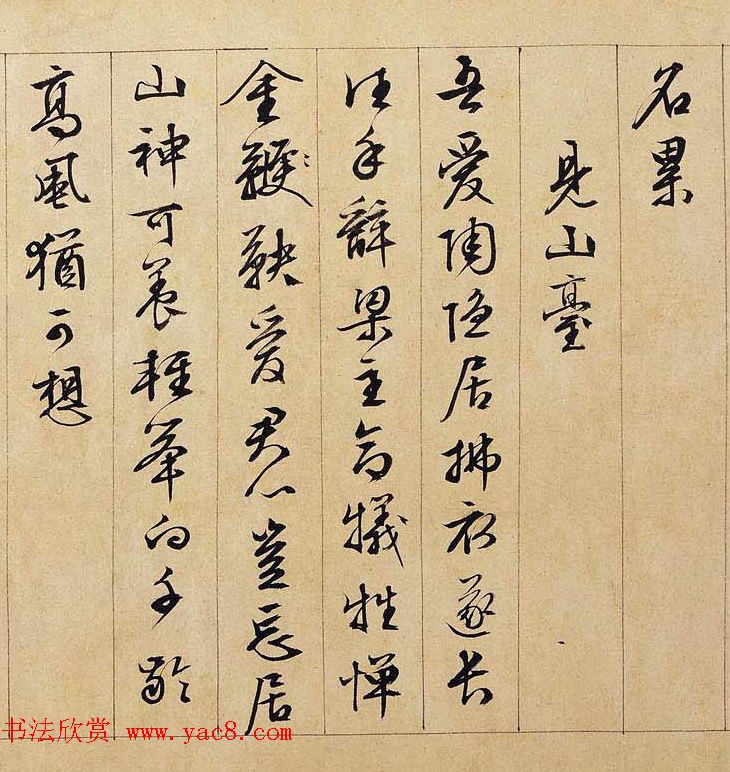 名累
見山臺
吾愛陶隱居拂衣遂長
往手辭梁主命犧牲憚
金鞭鞅愛君心豈忘居
山神可養輕舉向千齡
高風猶可想
书法欣赏 www.yac8.com